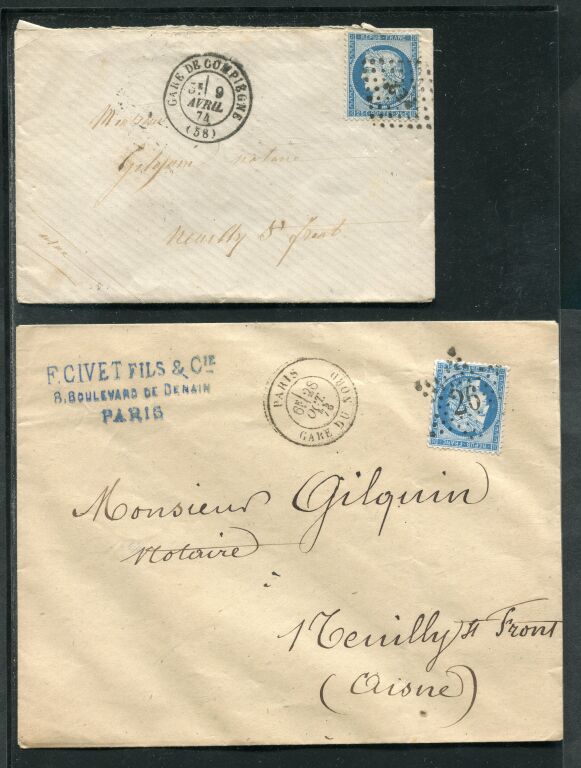 GARE DE COMPIÈGNE
9
AVRIL
74
(58)
REPUB. FRANC.
Gilquin notaire
Neuilly St front
aisne
F. CIVET FILS & CIE
8, BOULEVARD DE DENAIN
PARIS
PARIS
6E 28
OCT.
73
GARE DU NORD
26
REPUB. FRANC.
Monsieur Gilquin
Notaire
à
Neuilly St Front
(Aisne)